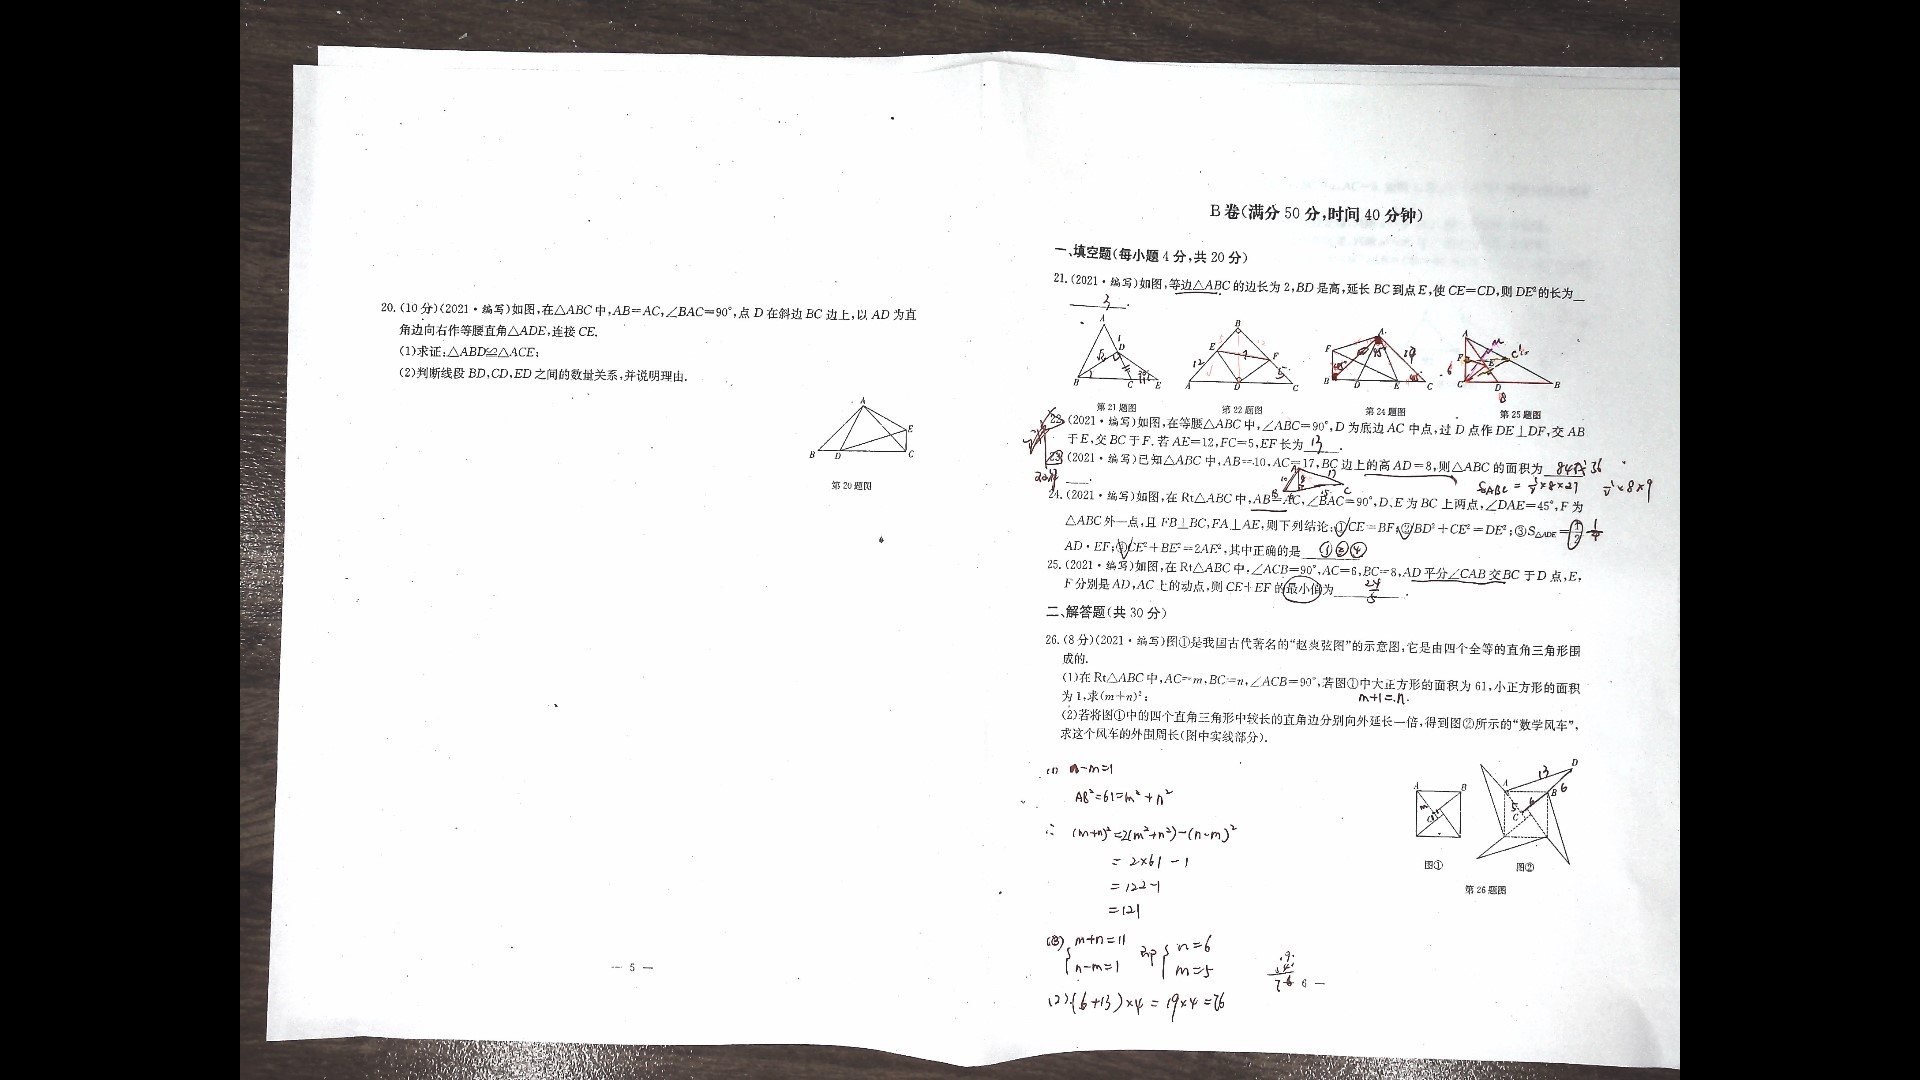 20.(10分)(2021·编写)如图,在△ABC中,AB=AC,∠BAC=90°,点D在斜边BC边上,以AD为直
角边向右作等腰直角△ADE,连接CE.
(1)求证:△ABD≌△ACE;
(2)判断线段BD,CD,ED之间的数量关系,并说明理由.
A
E
B D C
第20题图
— 5 —
B卷(满分50分,时间40分钟)
一、填空题(每小题4分,共20分)
21.(2021·编写)如图,等边△ABC的边长为2,BD是高,延长BC到点E,使CE=CD,则DE²的长为
3.
第21题图 第22题图 第24题图 第25题图
22.(2021·编写)如图,在等腰△ABC中,∠ABC=90°,D为底边AC中点,过D点作DE⊥DF,交AB
于E,交BC于F.若AE=12,FC=5,EF长为 13.
23.(2021·编写)已知△ABC中,AB=10,AC=17,BC边上的高AD=8,则△ABC的面积为 84或36
S△ABC = ½×8×21 ½×8×9
24.(2021·编写)如图,在Rt△ABC中,AB=AC,∠BAC=90°,D、E为BC上两点,∠DAE=45°,F为
△ABC外一点,且FB⊥BC,FA⊥AE,则下列结论:①CE=BF;②BD²+CE²=DE²;③S△ADE=½ ¼
AD·EF;④CE²+BE²=2AE²,其中正确的是 ①②④
25.(2021·编写)如图,在Rt△ABC中,∠ACB=90°,AC=6,BC=8,AD平分∠CAB交BC于D点,E,
F分别是AD,AC上的动点,则CE+EF的最小值为 24/5.
二、解答题(共30分)
26.(8分)(2021·编写)图①是我国古代著名的“赵爽弦图”的示意图,它是由四个全等的直角三角形围
成的.
(1)在Rt△ABC中,AC=m,BC=n,∠ACB=90°,若图①中大正方形的面积为61,小正方形的面积
为1,求(m+n)²;
m+1=n.
(2)若将图①中的四个直角三角形中较长的直角边分别向外延长一倍,得到图②所示的“数学风车”,
求这个风车的外围周长(图中实线部分).
(1) n-m=1
AB²=61=m²+n²
∴ (m+n)²=2(m²+n²)-(n-m)²
= 2×61-1
=122-1
=121
m+n=11
n-m=1
即 n=6
m=5
(2)(6+13)×4=19×4=76
图① 图②
第26题图
6 —